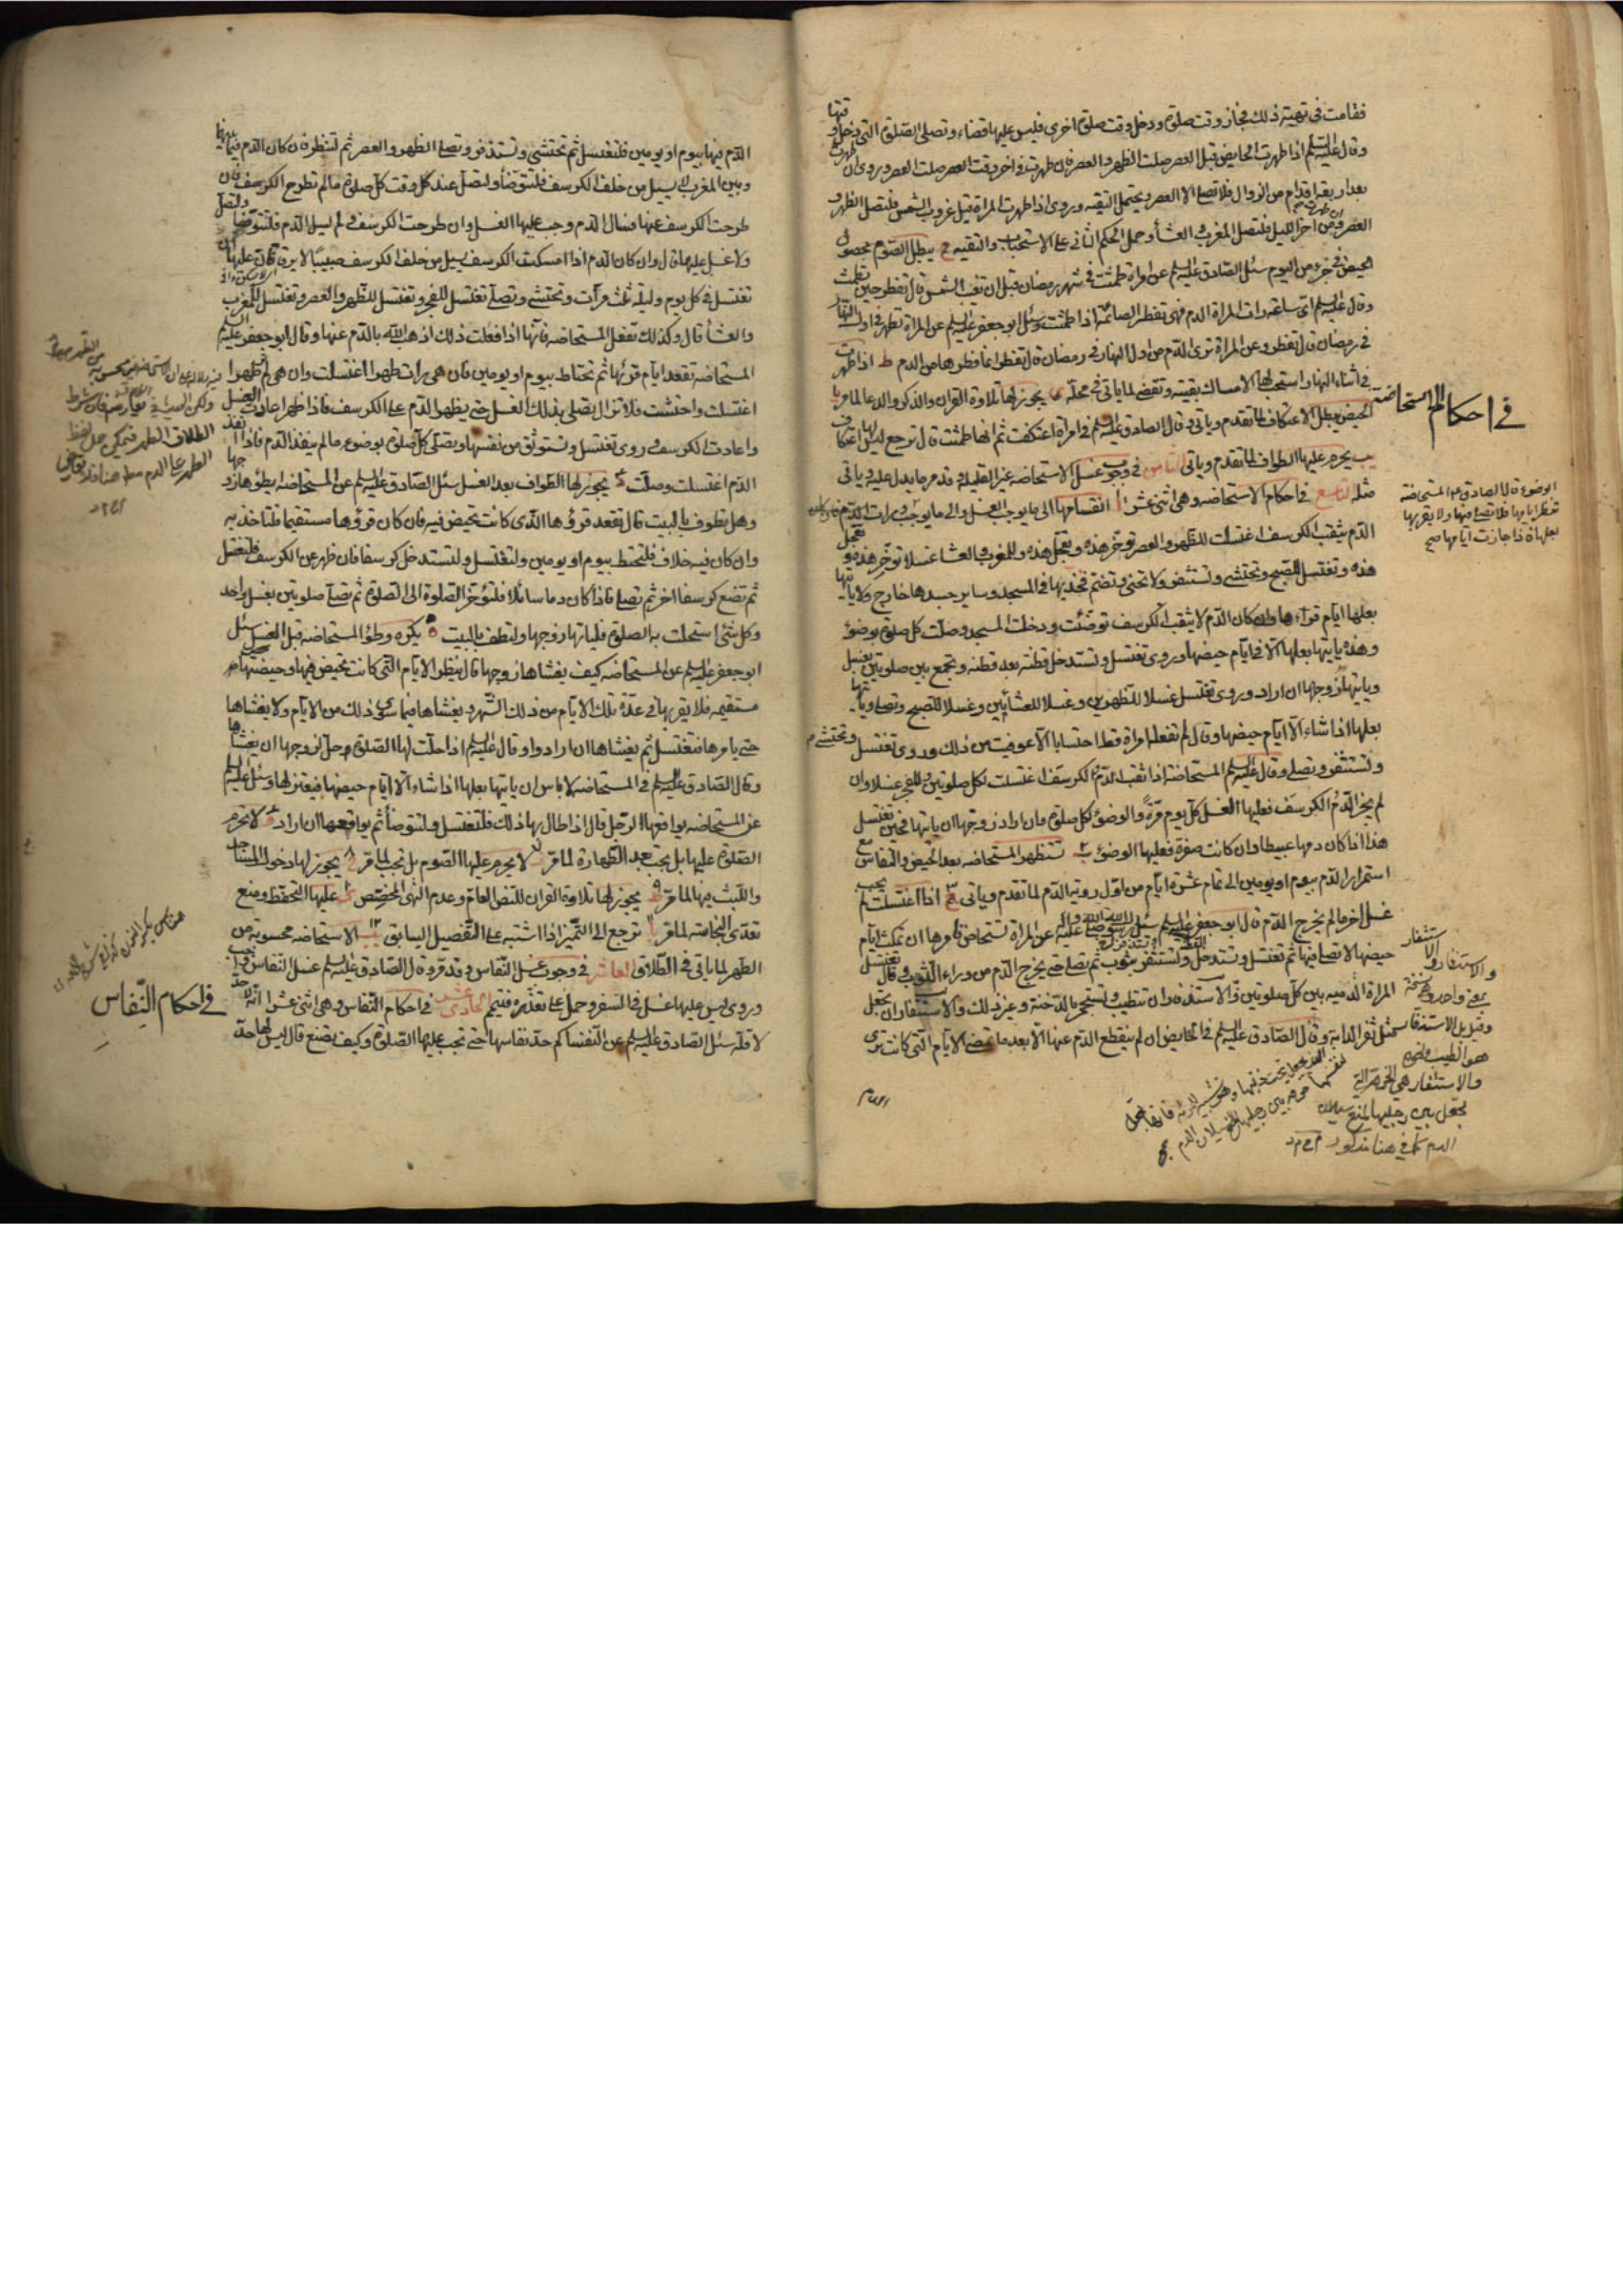 فقامت في تهيئة ذلك فجاز وقت صلوة ودخل وقت صلوة اخرى فليس عليها قضاء وتصلى الصلوة التي دخل وقتها
وقال عليه السلم اذا طهرت الحايض قبل العصر صلت الظهر والعصر فان طهرت في اخر وقت العصر صلت العصر وروى ان طهرت
بعد اربعة اقدام من الزوال فلا تصلى الا العصر ويحتمل التقيه وروى اذا طهرت المراة قبل غروب الشمس فلتصل الظهر و
العصر وان طهرت من اخر الليل فلتصل المغرب و العشأ وحمل الحكم الثاني على الاستحباب والتقيه يبطل الصوم بحصول
الحيض في جزء من اليوم سئل الصادق عليه السلم عن امراة طمثت في شهر رمضان قبل ان تغيب الشمس قال تفطر حين تطمث
وقال عليه السلم اي ساعة رات المراة الدم فهي تفطر الصائمة اذا طمثت وسئل ابو جعفر عليه السلم عن المراة تطهر في اول النهار
في رمضان قال تفطر وعن المراة ترى الدم من اول النهار في رمضان قال تفطر انما فطرها من الدم ط اذا طهرت
في اثناء النهار استحب لها الامساك بقيته وتقضى لما ياتي في محله ى يجوز لها تلاوة القران والذكر والدعا لما مر يا
الحيض يبطل الاعتكاف لما تقدم وياتي وقال الصادق عليه السلم في امراة اعتكفت ثم انها طمثت قال ترجع ليس لها اعتكاف
يب يحرم عليها الطواف لما تقدم وياتي الثامن في وجوب غسل الاستحاضه غير القليله وقد مر ما يدل عليه وياتي
مثله التاسع في احكام الاستحاضه وهي اثنى عشر ا انقسامها الى ما يوجب الغسل والى ما يوجب
الدم يثقب الكرسف اغتسلت للظهر والعصر تؤخر هذه وتعجل هذه وللمغرب والعشا غسلا تؤخر هذه وتعجل
هذه وتغتسل للصبح وتحتشى وتستثفر ولا تحنى وتضم فخذيها في المسجد وساير جسدها خارج ولا ياتيها
بعلها ايام قرائها وان كان الدم لا يثقب الكرسف توضئت ودخلت المسجد وصلت كل صلوة بوضوء
وهذه ياتيها بعلها الا في ايام حيضها وروى تغتسل وتستدخل قطنة بعد قطنه وتجمع بين صلوتين بغسل
وياتيها زوجها ان اراد وروى تغتسل غسلا للظهرين وغسلا للعشائين وغسلا للصبح وتصلى وياتيها
بعلها اذا شاء الا ايام حيضها وقال لم تفعله امراة قط احتسابا الا عوفيت من ذلك وروى تغتسل وتحتشى
وتستثفر وتصلى وقال عليه السلم المستحاضة اذا ثقب الدم الكرسف اغتسلت لكل صلوتين وللفجر غسلا وان
لم يجز الدم الكرسف فعليها الغسل كل يوم مرة والوضوء لكل صلوة وان اراد زوجها ان ياتيها فحين تغتسل
هذا اذا كان دمها عبيطا وان كانت صفرة فعليها الوضوء ب تستظهر المستحاضه بعد الحيض والنفاس مع
استمرار الدم بيوم او يومين الى تمام عشرة ايام من اول رويه الدم لما تقدم وياتي ج اذا اغتسلت لم يجب
غسل اخر ما لم يخرج الدم قال ابو جعفر عليه السلم سئل رسول الله صلى الله عليه واله عن المراة تستحاض فامرها ان تمكث ايام
حيضها لا تصلى فيها ثم تغتسل وتستدخل وتستثفر بثوب ثم تصلى حتى يخرج الدم من وراء الثوب وقال تغتسل
المراة الدميه بين كل صلوتين والاستذفار ان تتطيب وتستجمر بالدخنة وغير ذلك والاستثفار ان تجعل
مثل ثفر الدابة وقال الصادق عليه السلم في الحايض ان لم ينقطع الدم عنها الا بعد ما تمضى الايام التي كانت ترى
في احكام الاستحاضه
الوضوء قال الصادق المستحاضة
تنظر ايامها فلا تصلى فيها ولا يقربها
بعلها فاذا جازت ايامها صح
والاستذفار والاستثفار
وقيل بل الاستذفار
هو الطيب
والاستثفار هي
تجعل بين رجليها لمنع سيلان
الدم
الدم فيها بيوم او يومين فلتغتسل ثم تحتشى وتستذفر وتصلى الظهر والعصر ثم لتنظر فان كان الدم فيما بينها
وبين المغرب لا يسيل من خلف الكرسف فلتتوضأ ولتصل عند كل وقت كل صلوة ما لم تطرح الكرسف فان
طرحت الكرسف عنها فسال الدم وجب عليها الغسل وان طرحت الكرسف ولم يسيل الدم فلتتوضأ ولتصل
ولا غسل عليها قال وان كان الدم اذا امسكت الكرسف يسيل من خلف الكرسف صبيبا لا يرقى فان عليها ان
تغتسل في كل يوم وليلة ثلث مرات وتحتشى وتصلى تغتسل للفجر وتغتسل للظهر والعصر وتغتسل للمغرب
والعشأ قال وكذلك تفعل المستحاضه فانها اذا فعلت ذلك اذهب الله بالدم عنها وقال ابو جعفر عليه السلم
المستحاضه تقعد ايام قرئها ثم تحتاط بيوم او يومين فان هي رات طهرا اغتسلت وان هي لم تر طهرا
اغتسلت واحتشت فلا تزال تصلى بذلك الغسل حتى يظهر الدم على الكرسف فاذا ظهر اعادت الغسل
واعادت الكرسف وروى تغتسل وتستوثق من نفسها وتصلى كل صلوة بوضوء ما لم ينفذ الدم فاذا نفذ
الدم اغتسلت وصلت د يجوز لها الطواف بعد الغسل سئل الصادق عليه السلم عن المستحاضة ايطؤها زوجها
وهل تطوف بالبيت قال تقعد قرؤها الذي كانت تحيض فيه فان كان قرؤها مستقيما فلتاخذ به
وان كان فيه خلاف فلتحتط بيوم او يومين ولتغتسل ولتستدخل كرسفا فان ظهر عن الكرسف فلتغتسل
ثم تضع كرسفا اخر ثم تصلى فاذا كان دما سائلا فلتؤخر الصلوة الى الصلوة ثم تصلى صلوتين بغسل واحد
وكل شئ استحلت به الصلوة فلياتها زوجها ولتطف بالبيت ه يكره وطؤ المستحاضه قبل الغسل سئل
ابو جعفر عليه السلم عن المستحاضه كيف يغشاها زوجها قال ينظر الايام التي كانت تحيض فيها وحيضتها
مستقيمه فلا يقربها في عدة تلك الايام من ذلك الشهر ويغشاها فيما سوى ذلك من الايام ولا يغشاها
حتى يامرها فتغتسل ثم يغشاها ان اراد وقال عليه السلم اذا حلت لها الصلوة حل لزوجها ان يغشاها
وقال الصادق عليه السلم في المستحاضه لا باس ان ياتيها بعلها اذا شاء الا ايام حيضها فيعتزلها وسئل عليه السلم
عن المستحاضه يواقعها الرجل قال اذا طال بها ذلك فلتغتسل ولتتوضأ ثم يواقعها ان اراد و لا تحرم
الصلوة عليها بل تجب بعد الطهارة لما مر ز لا يحرم عليها الصوم بل تجب لما مر ح يجوز لها دخول المساجد
واللبث فيها لما مر ط يجوز لها تلاوة القران للنص العام وعدم النهي المختص ى عليها التحفظ ومنع
تعدى النجاسة لما مر يا ترجع الى التميز اذا اشتبه على التفصيل السابق يب الاستحاضه محسوبة من
الطهر لما ياتي في الطلاق العاشر في وجوب غسل النفاس وقد مر وقال الصادق عليه السلم غسل النفاس واجب
وروى ليس عليها غسل في السفر وحمل على تعذره فتيمم الحادي عشر في احكام النفاس وهي اثنى عشر ا انه لا حد
لاقله سئل الصادق عليه السلم عن النفساء كم حد نفاسها حتى تجب عليها الصلوة وكيف تصنع قال ليس لها حد
في احكام النفاس